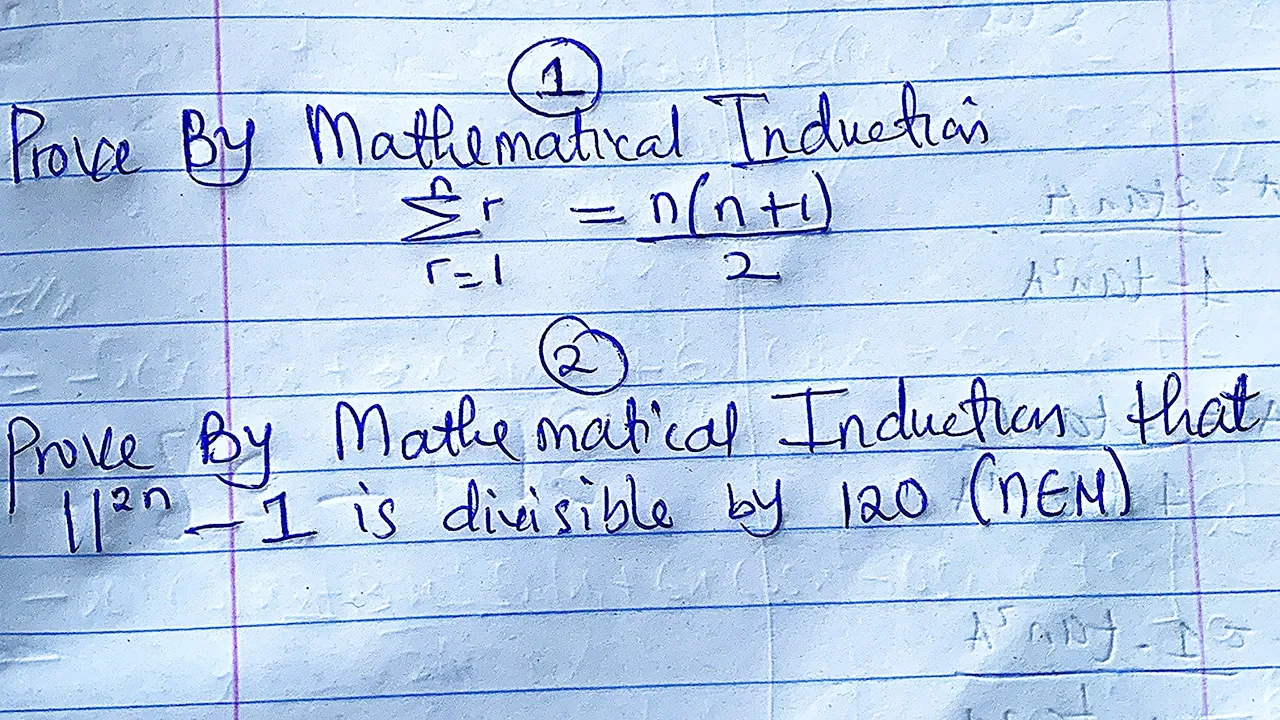 1
Prove By Mathematical Induction
n
∑ r = n(n+1)
r=1 2
2
Prove By Mathematical Induction that
11²ⁿ - 1 is divisible by 120 (n∈N)
2tanA
1-tan²A
1-tan²A